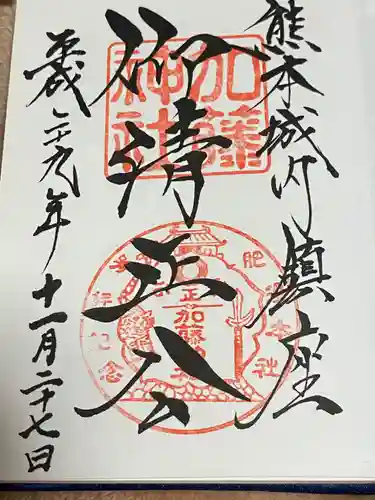 熊本城内鎮座
御清正公
平成二十九年十一月二十七日
加藤神社
加藤神社
参拝記念